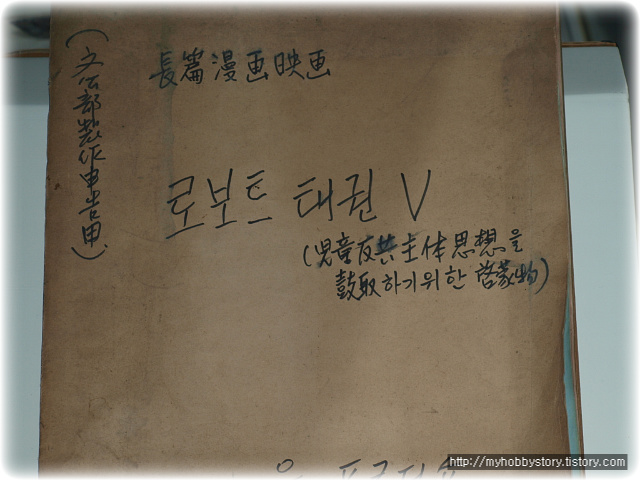 (文公部製作申告用)
長篇漫画映画
로보트 태권 V
(児童反共主体思想을
鼓取하기위한 啓蒙物)
http://myhobbystory.tistory.com